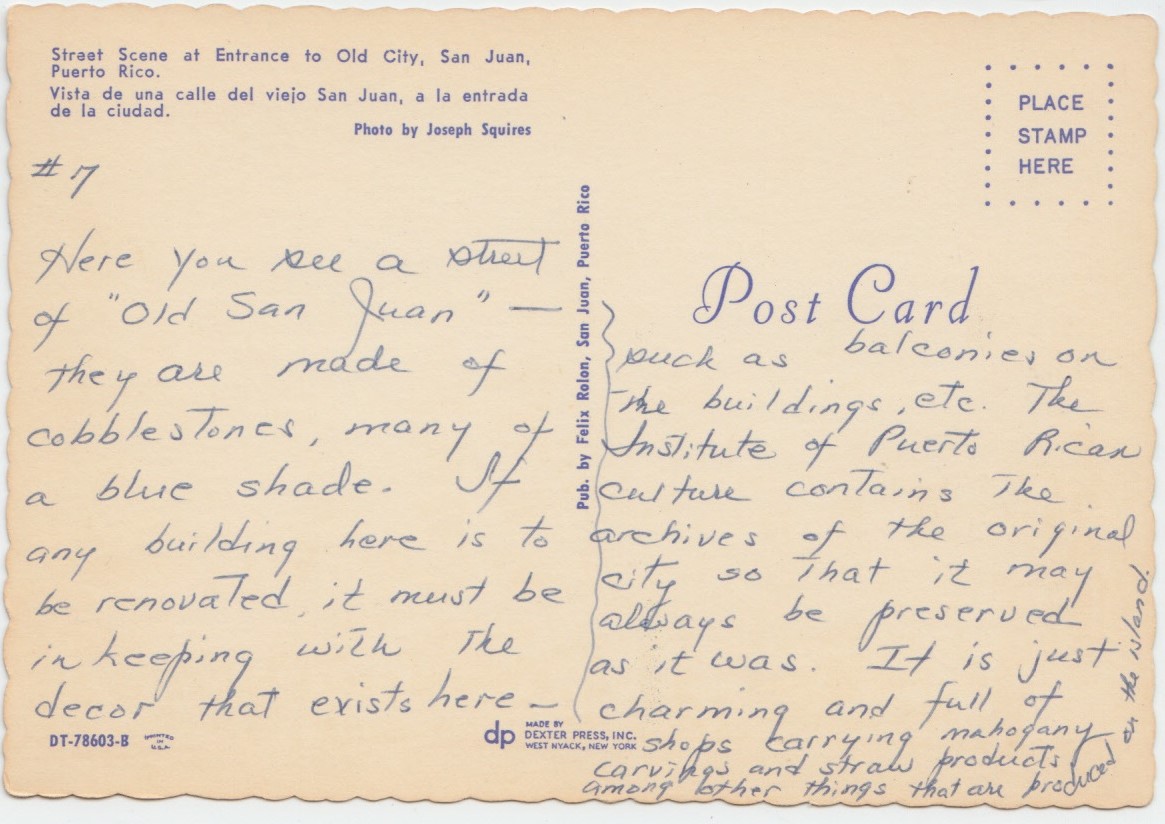 Street Scene at Entrance to Old City, San Juan,
Puerto Rico.
Vista de una calle del viejo San Juan, a la entrada
de la ciudad.
Photo by Joseph Squires
#7
Here you see a street
of "Old San Juan" —
they are made of
cobblestones, many of
a blue shade. If
any building here is to
be renovated, it must be
in keeping with the
decor that exists here —
DT-78603-B
PRINTED
IN
U.S.A.
Pub. by Felix Rolon, San Juan, Puerto Rico
dp
MADE BY
DEXTER PRESS, INC.
WEST NYACK, NEW YORK
PLACE
STAMP
HERE
Post Card
such as balconies on
the buildings, etc. The
Institute of Puerto Rican
culture contains the
archives of the original
city so that it may
always be preserved
as it was. It is just
charming and full of
shops carrying mahogany
carvings and straw products
among other things that are produced
on the island.